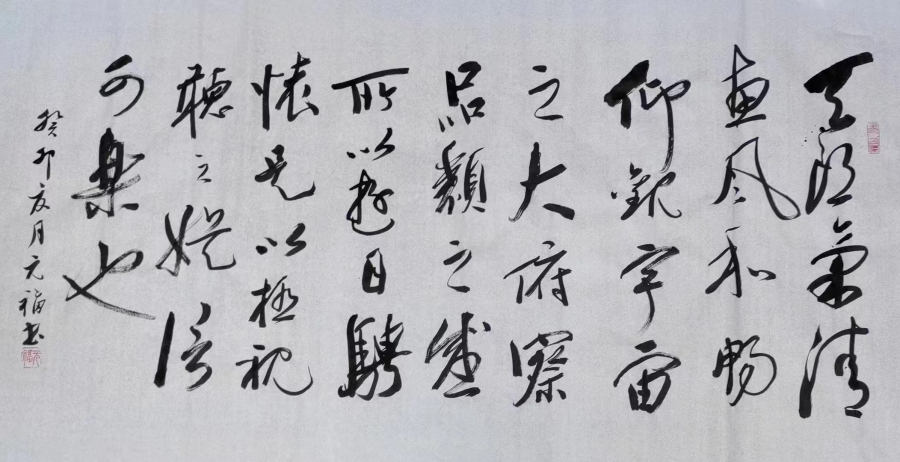 天朗氣清
惠風和暢
仰觀宇宙
之大俯察
品類之盛
所以遊目騁
懷足以極視
聽之娛信
可樂也
癸卯友月元福书